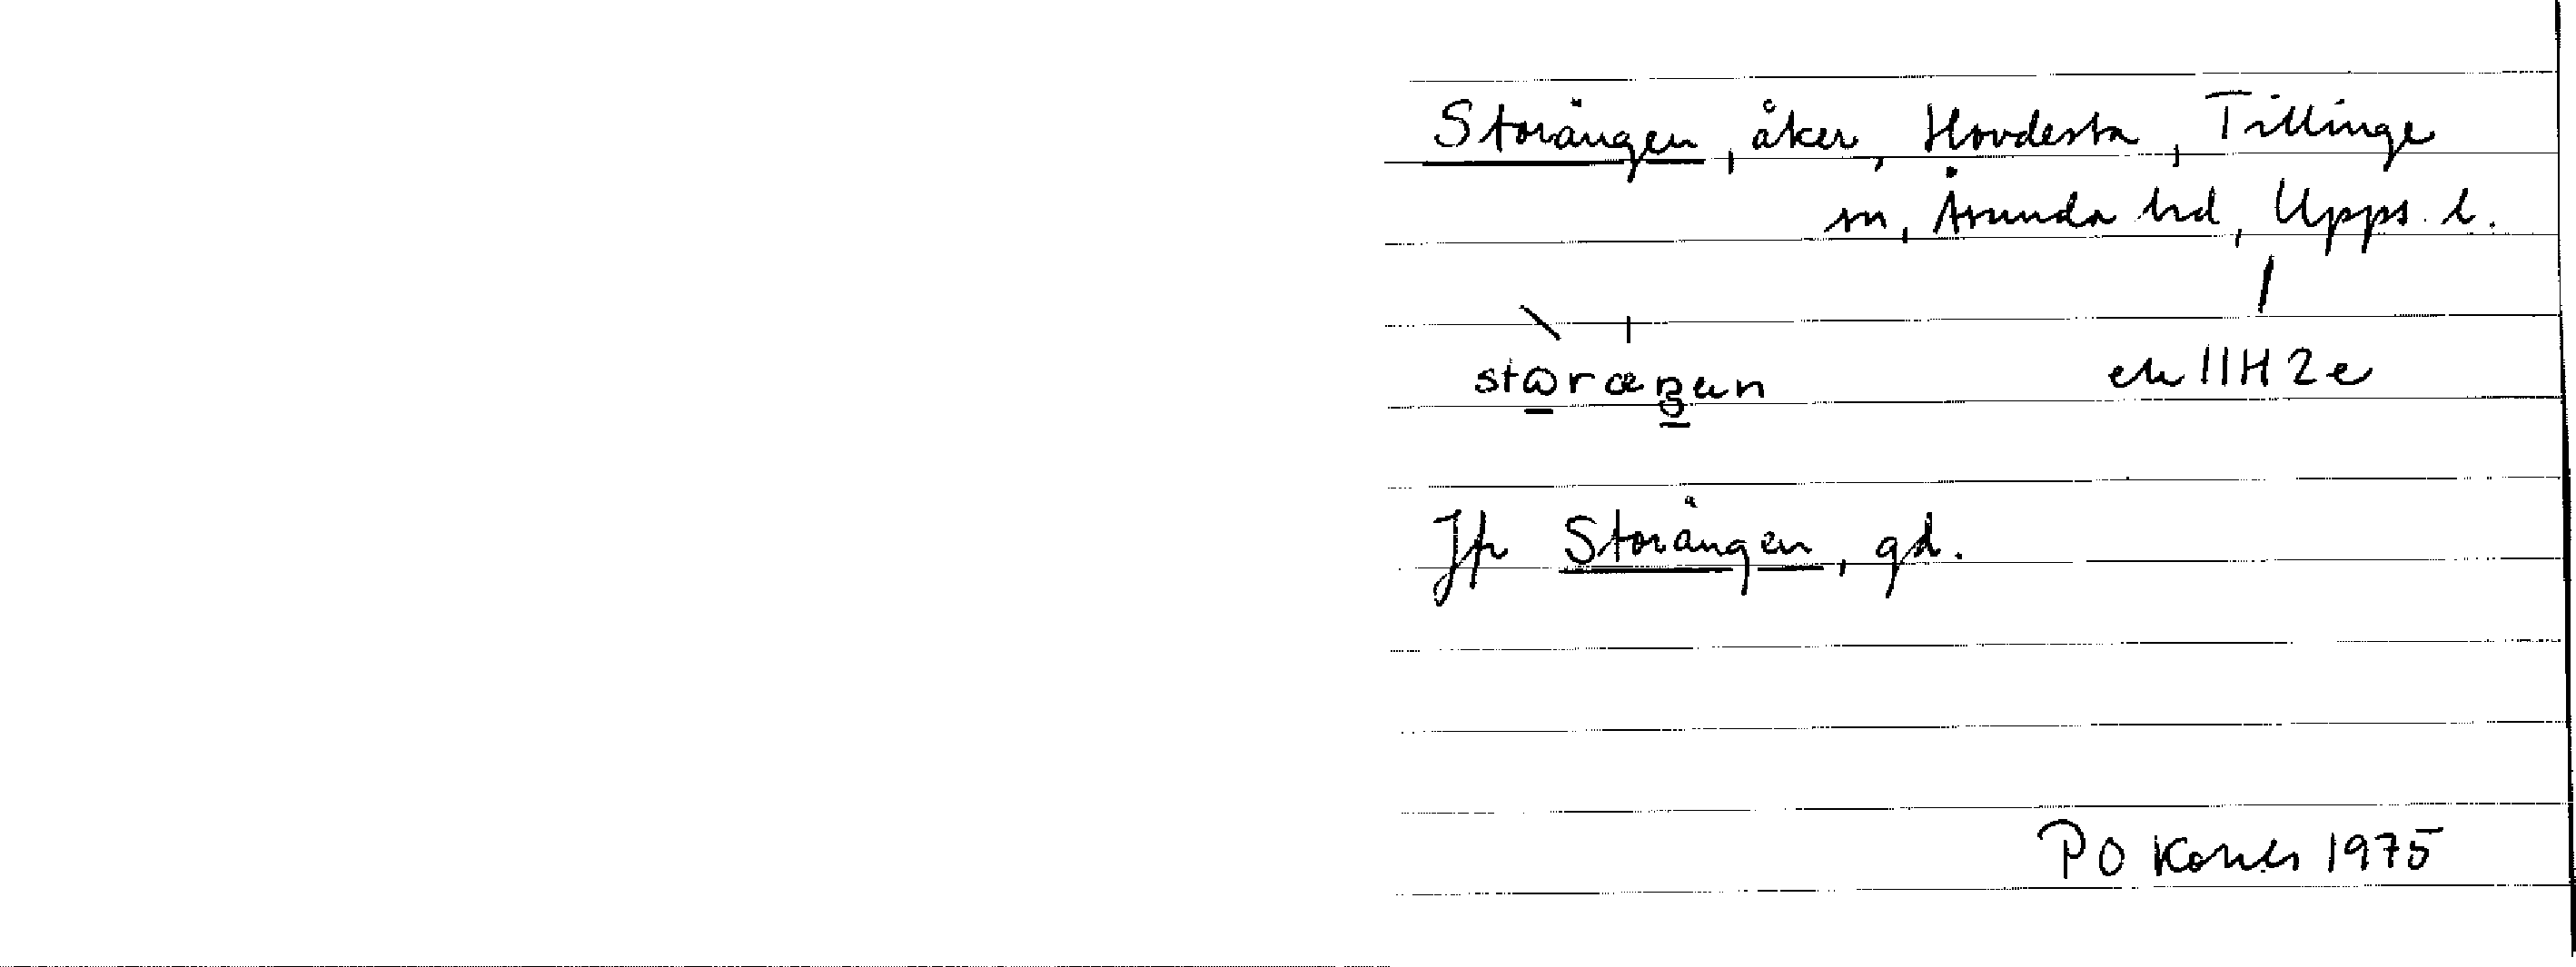 Storängen, åker, Hovdesta, Tillinge
sn, Åsunda hd, Upps. l.
ek 11H2e
Jfr Storängen, gd.
PO 1975